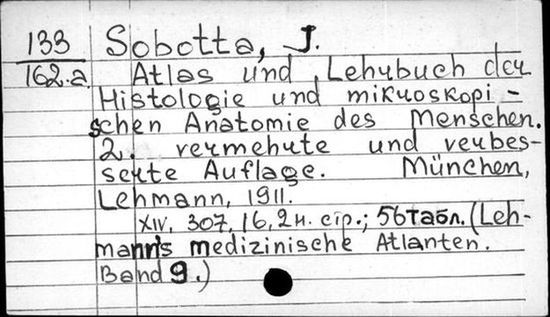 133 Sobotta, J.
162.a Atlas und Lehrbuch der
Histologie und mikroskopi-
schen Anatomie des Menschen.
2. vermehrte und verbes-
serte Auflage. München,
Lehmann, 1911.
XIV, 307, 16, 2 н. стр.; 56 табл. (Leh-
mann's medizinische Atlanten.
Band 9.)